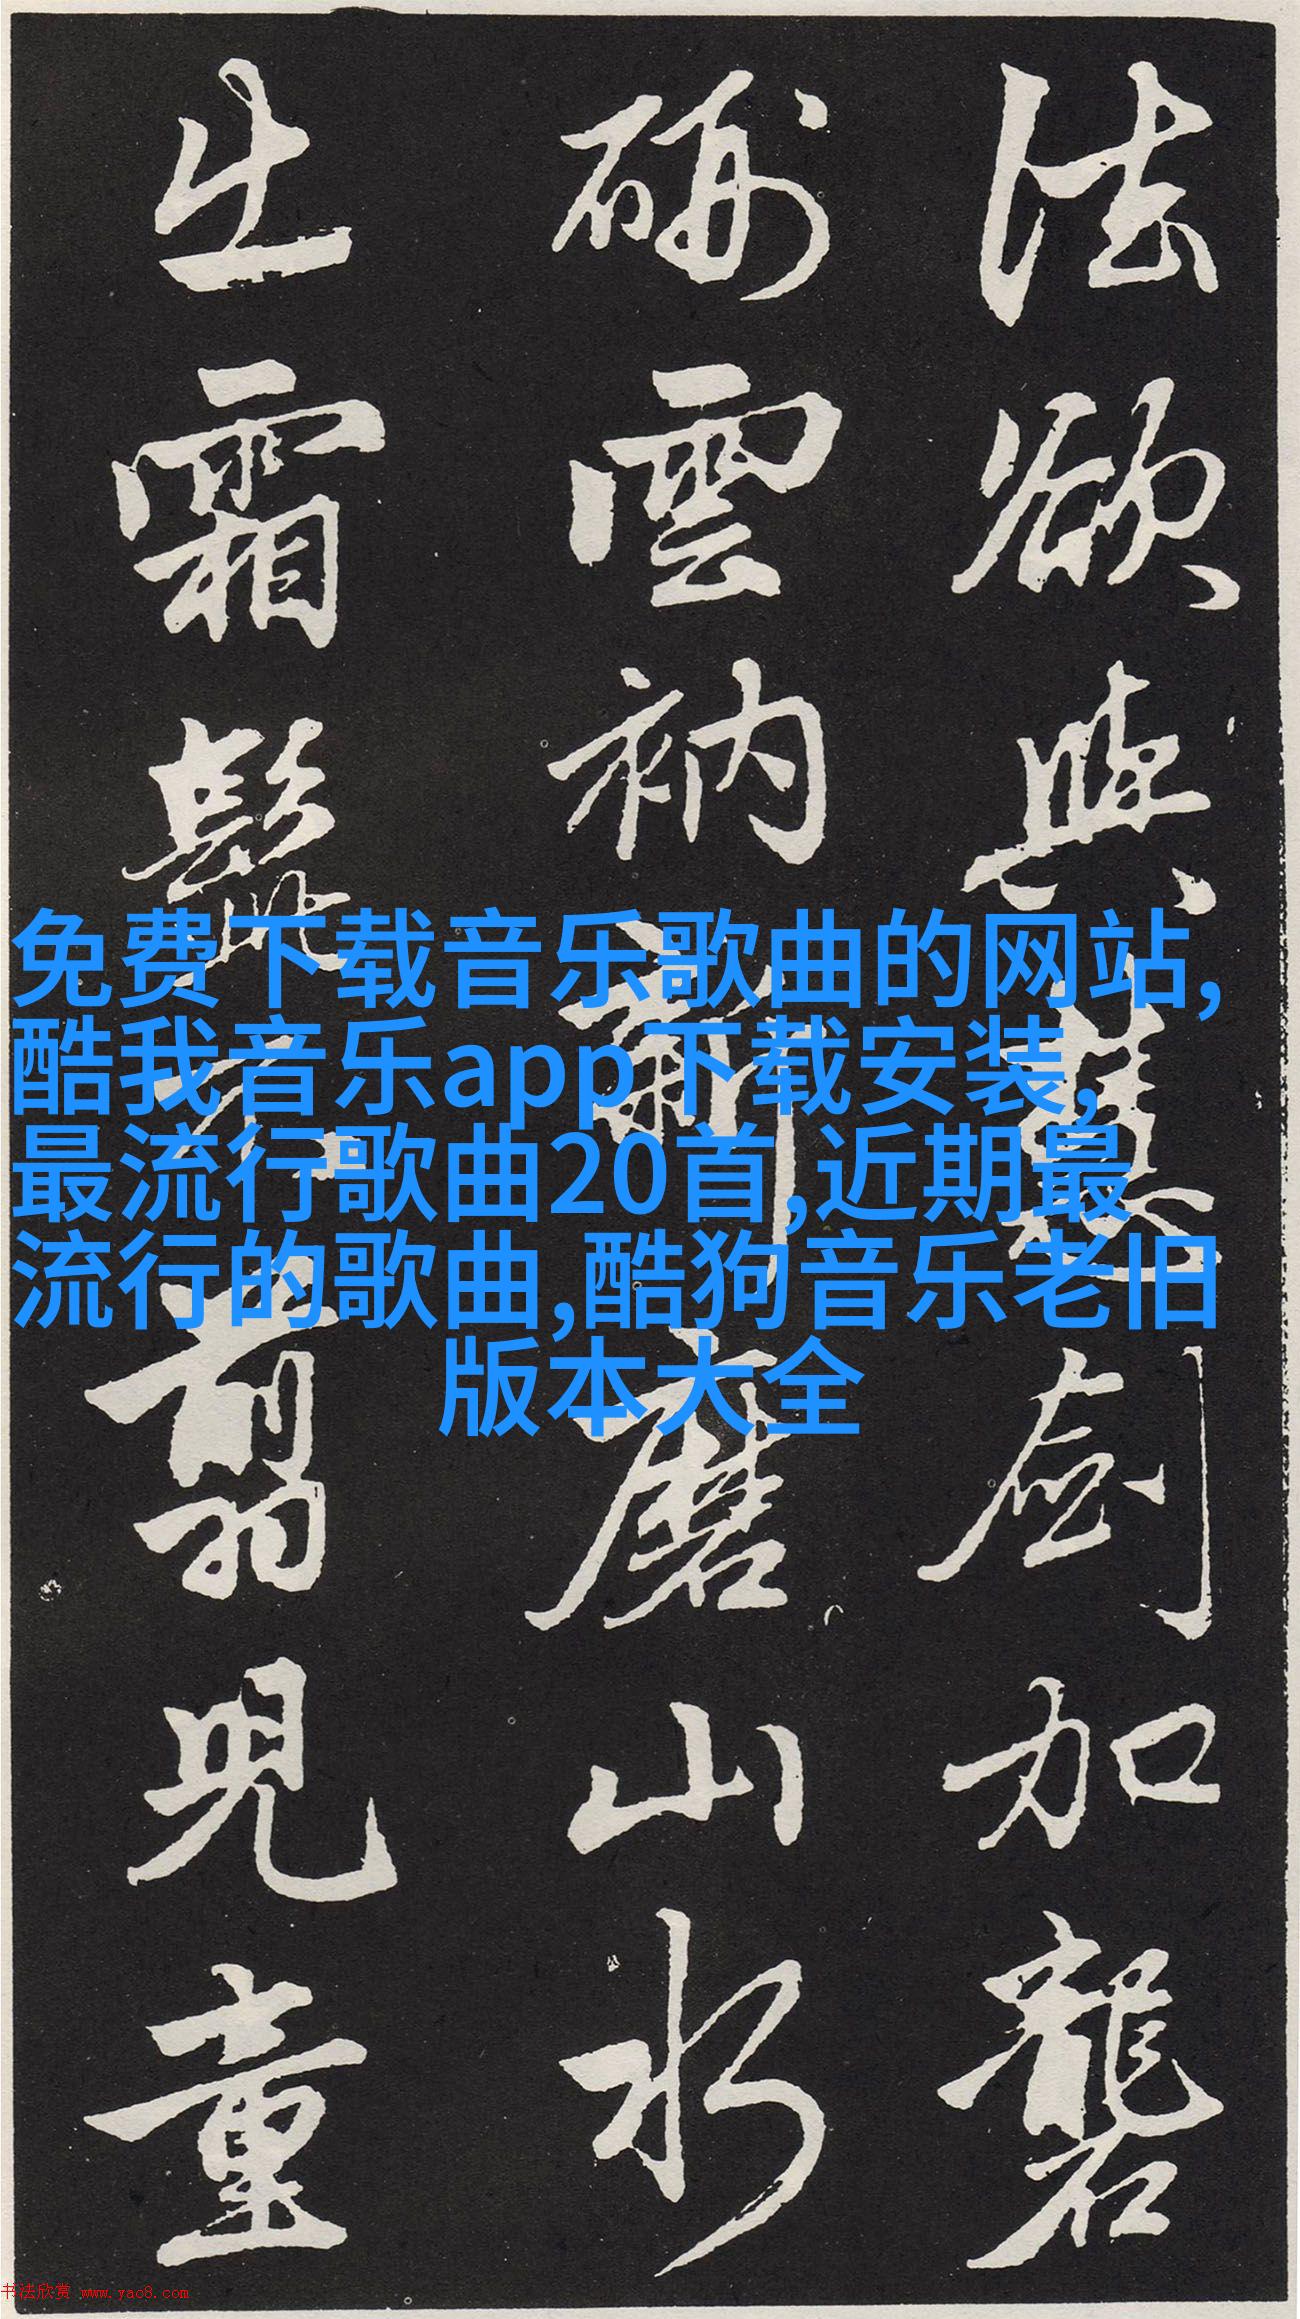 法欲與慧劍加礱
硎雲衲新磨山水
出霜髭不翦兒童
免费下载音乐歌曲的网站,
酷我音乐app下载安装,
最流行歌曲20首,近期最
流行的歌曲,酷狗音乐老旧
版本大全
书法欣赏 www.yac8.com